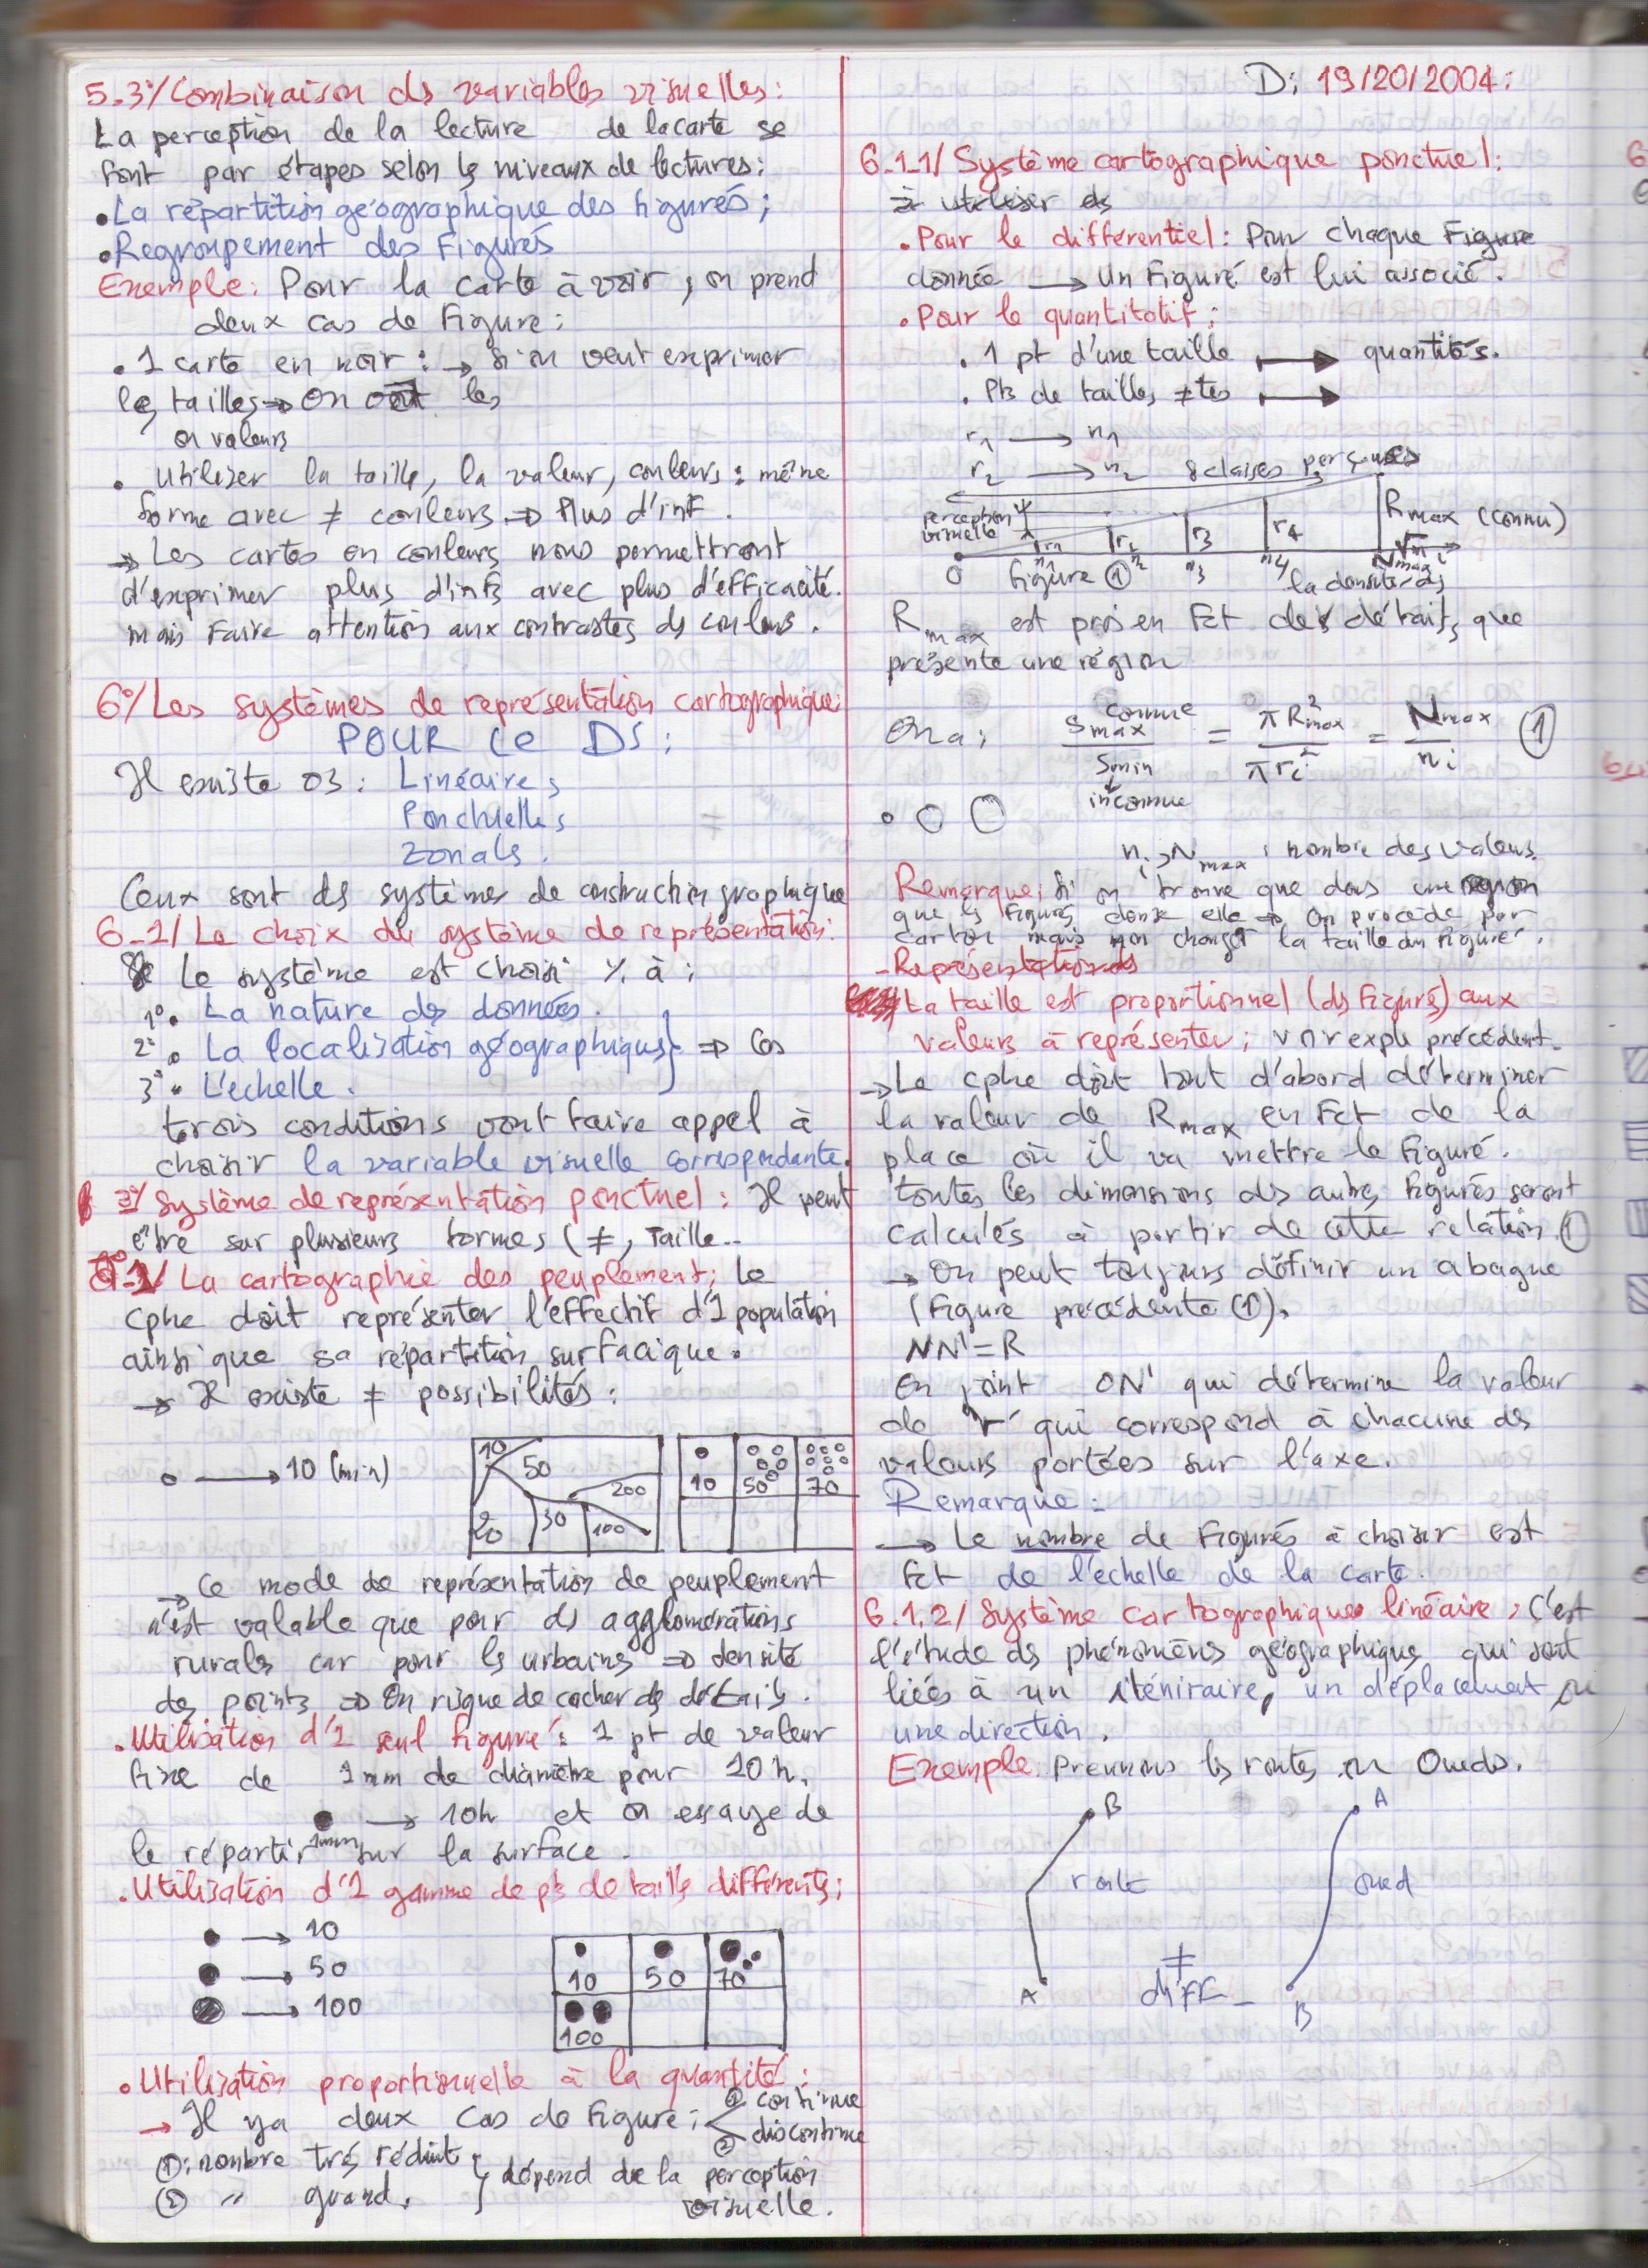 5.3°/ Combinaison ds variables visuelles :
La perception de la lecture de la carte se
font par étapes selon ls niveaux de lectures :
• La répartition géographique des figurés ;
• Regroupement des Figurés
Exemple : Pour la carte à voir , on prend
deux cas de Figure :
• 1 carte en noir : → Si on veut exprimer
les tailles ⇒ on les
ou valeurs
• Utiliser la taille, la valeur, couleurs : même
forme avec ≠ couleurs ⇒ Plus d'inf .
→ Les cartes en couleurs nous permettront
d'exprimer plus d'infs avec plus d'efficacité.
mais Faire attention aux contrastes ds couleurs .
6°/ Les systèmes de représentation cartographique :
POUR Le DS :
Il existe 03 : Linéaires
Ponctuelles
Zonals .
Ceux sont ds systèmes de construction graphique
6-1/ Le choix du système de représentation :
Le système est choisi % à :
1°. La nature des données .
2°. La localisation géographiques } ⇒ Ces
3°. L'échelle .
trois conditions vont faire appel à
choisir la variable visuelle correspondante.
3°/ Système de représentation ponctuel : Il peut
être sur plusieurs formes ( ≠, Taille..
1/ La cartographie des peuplement : Le
cphe doit représenter l'effectif d'1 population
ainsi que sa répartition surfacique .
→ Il existe ≠ possibilités :
o → 10 (min)
10 50 200 20 30 100
10 50 70
→ Ce mode de représentation de peuplement
n'est valable que pour ds agglomérations
rurales car pour ls urbains ⇒ densité
des points ⇒ On risque de cacher ds détails .
• Utilisation d'1 seul figuré : 1 pt de valeur
fixe de 1mm de diamètre pour 10 h.
● → 10h et on essaye de
1mm
le répartir sur la surface .
• Utilisation d'1 gamme de pts de taille différents ;
● → 10
● → 50
● → 100
10 50 70
100
• Utilisation proportionnelle à la quantité :
→ Il ya deux cas de Figure : ① continue
② discontinue
①: nombre très réduit } dépend de la perception
② " grand . visuelle .
D: 19/20/2004 :
6-1-1/ Système cartographique ponctuel :
à utiliser ds
• Pour le différentiel : Pour chaque Figure
donnée → Un Figuré est lui associé .
• Pour le quantitatif :
. 1 pt d'une taille → quantités.
. Pts de tailles ≠tes →
r1 → n1
r2 → n2 8 claises perçues
perception visuelle r1 r2 r3 r4 Rmax (connu)
0 n1 n2 n3 n4 Nmax √ni
Figure ① la densité ds
Rmax est pris en Fct des détails que
présente une région
On a : Smax connue / Smin inconnue = πR²max / πri² = Nmax / ni ①
ni, Nmax : nombre des valeurs.
Remarque : Si on trouve que dans une région
que ls Figurés dense elle ⇒ On procède par
carton mais non changer la taille du Figuré .
- Représentation ds
La taille est proportionnel (ds Figurés) aux
valeurs à représenter ; voir exple précédent.
→ Le cphe doit tout d'abord déterminer
la valeur de Rmax en Fct de la
place où il va mettre le Figuré .
toutes les dimensions ds autres figurés seront
calculés à partir de cette relation ①
→ On peut toujours définir un abaque
(Figure précédente ①).
NN' = R
On joint ON' qui détermine la valeur
de "r" qui correspond à chacune ds
valeurs portées sur l'axe .
Remarque :
→ Le nombre de Figurés à choisir est
Fct de l'échelle de la carte .
6.1.2/ Système cartographique linéaire : C'est
l'étude ds phénomèns géographiques qui sont
liées à un iténiraire, un déplacement ou
une direction .
Exemple : Prennons ls routes ou Oueds .
B A
route oued
≠
diff
A B